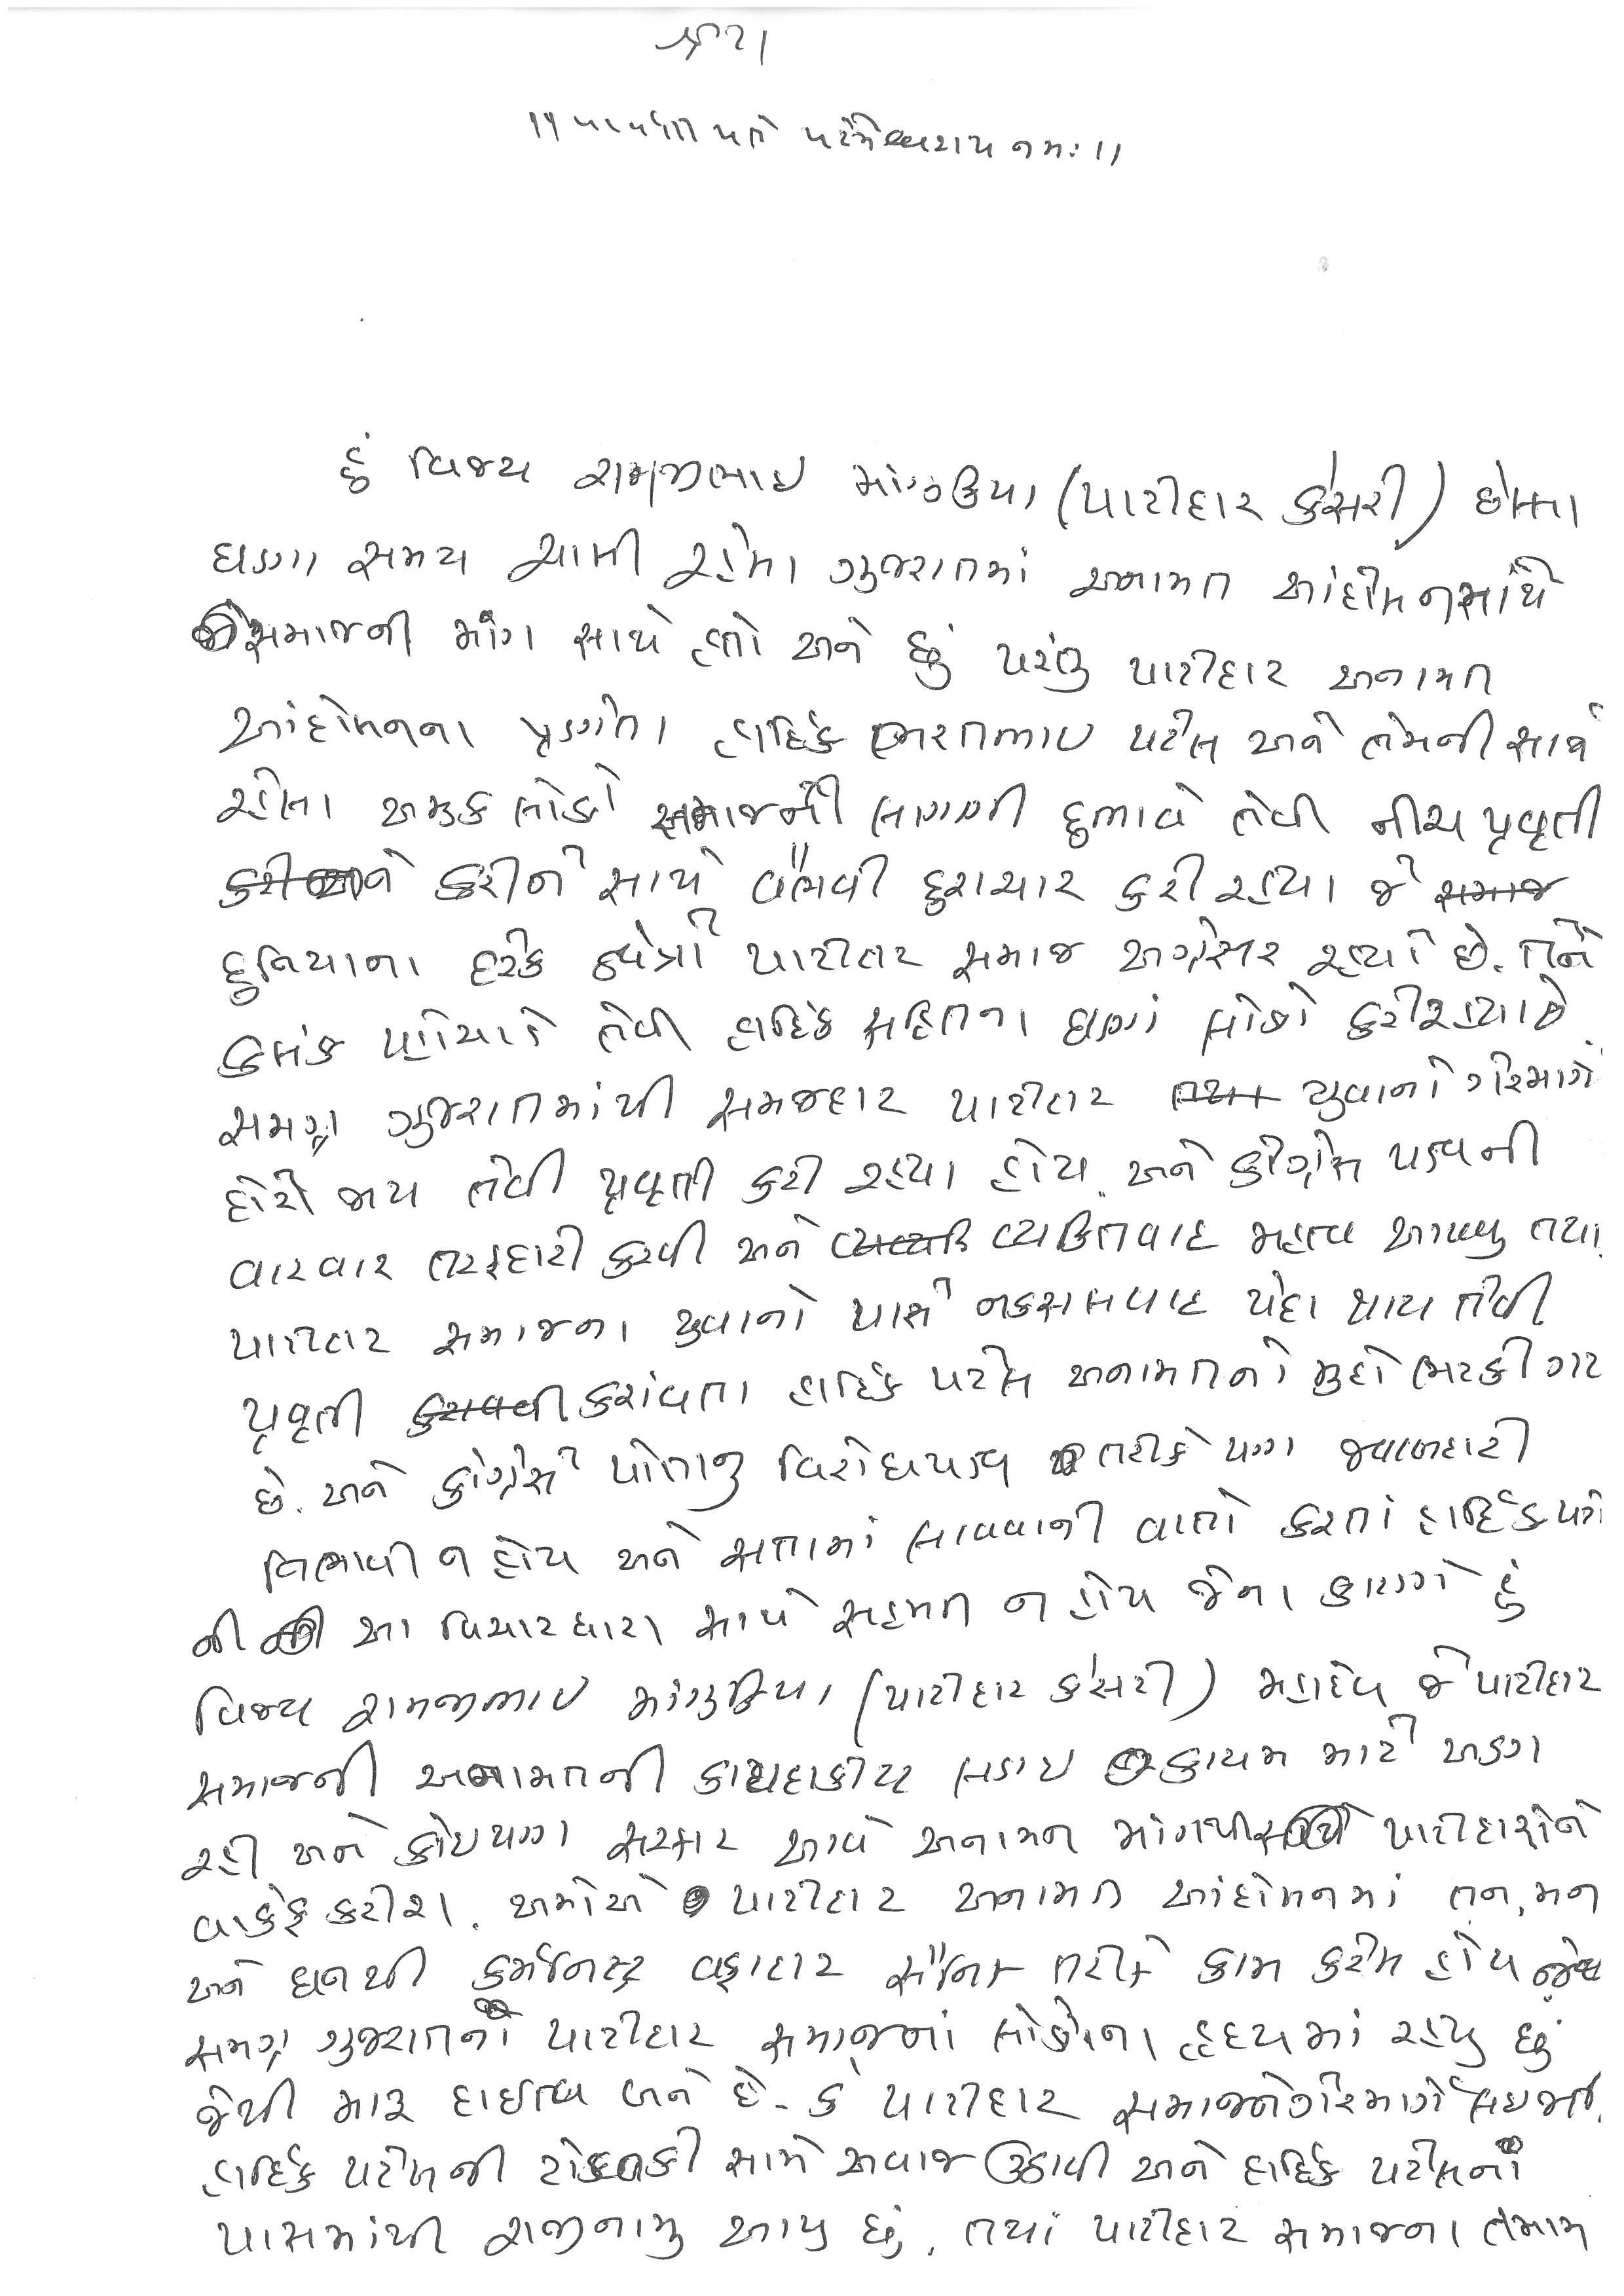 હું વિજય રામજીભાઇ માંગુકિયા (પાટીદાર કેસરી) છેલ્લા
ઘણા સમય ચાલી રહેલા ગુજરાતમાં અનામત આંદોલનમાંથે
સમાજની માંગ સાથે હતો અને છું પરંતુ પાટીદાર અનામત
આંદોલનના પ્રણેતા હાર્દિક ભરતભાઇ પટેલ અને તેમની સાથે
રહેલા અમુક લોકો સમાજની લાગણી દુભાવે તેવી નીચ પ્રવૃતી
કરીને સાથે વૈભવી દુરાચાર કરી રહયા જે સમાજ
દુનિયાના દરેક ક્ષેત્રે પાટીદાર સમાજ અગ્રેસર રહ્યો છે. તેને
કલંક પહોચાડે તેવી હાર્દિક સહિતના ઘણાં લોકો કરી રહયા છે
સમગ્ર ગુજરાતમાંથી સમજદાર પાટીદાર યુવાનો ગેરમાર્ગે
દોરી જાય તેવી પ્રવૃતી કરી રહયા હોય. અને કોંગ્રેસ પક્ષની
વારવાર તરફદારી કરવી અને વ્યકિતવાદ મહત્વ આપવુ તથા
પાટીદાર સમાજના યુવાનો પાસે નકસલવાદ પેદા થાય તેવી
પ્રવૃતી કરાંવતા હાર્દિક પટેલ અનામતનો મુદો ભટકી ગય
છે. અને કોંગ્રેસે પોતાનુ વિરોધપક્ષ તરીકે પણ જવાબદારી
નિભાવી ન હોય અને સતામાં લાવવાની વાતો કરતાં હાર્દિક પટે
ની આ વિચારધારા સાથે સહમત ન હોય જેના કારણે હું
વિજય રામજીભાઇ માંગુકિયા (પાટીદાર કેસરી) મહાદેવ જે પાટીદાર
સમાજની અનામતની કાયદાકીય લડાઇ કાયમ માટે અડગ
રહી અને કોઇપણ સરકાર આવે અનામત માંગથી પાટીદારોને
વાકેફ કરીશ. અમોએ પાટીદાર અનામત આંદોલનમાં તન, મન
અને ધનથી કર્મનિષ્ઠ વફાદાર સૈનિક તરીકે કામ કરેલ હોય જેથી
સમગ્ર ગુજરાતની પાટીદાર સમાજનાં લોકોના હૃદયમાં રહયુ છું
જેથી મારૂ દાઇત્વ બને છે. કે પાટીદાર સમાજને ગેરમાર્ગે લઇ જતાં
હાર્દિક પટેલની ટોકળકી સામે અવાજ ઉઠાવી અને હાર્દિક પટેલની
પાસમાંથી રાજીનામુ આપુ છું. તથાં પાટીદાર સમાજના તમામ